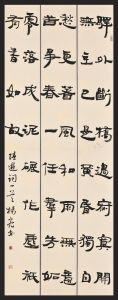 驛外斷橋邊寂寞開
無主已是黃昏獨自
愁更着風和雨無意
苦爭春一任群芳妒
零落成泥碾作塵祇
有香如故
陸遊詞一首